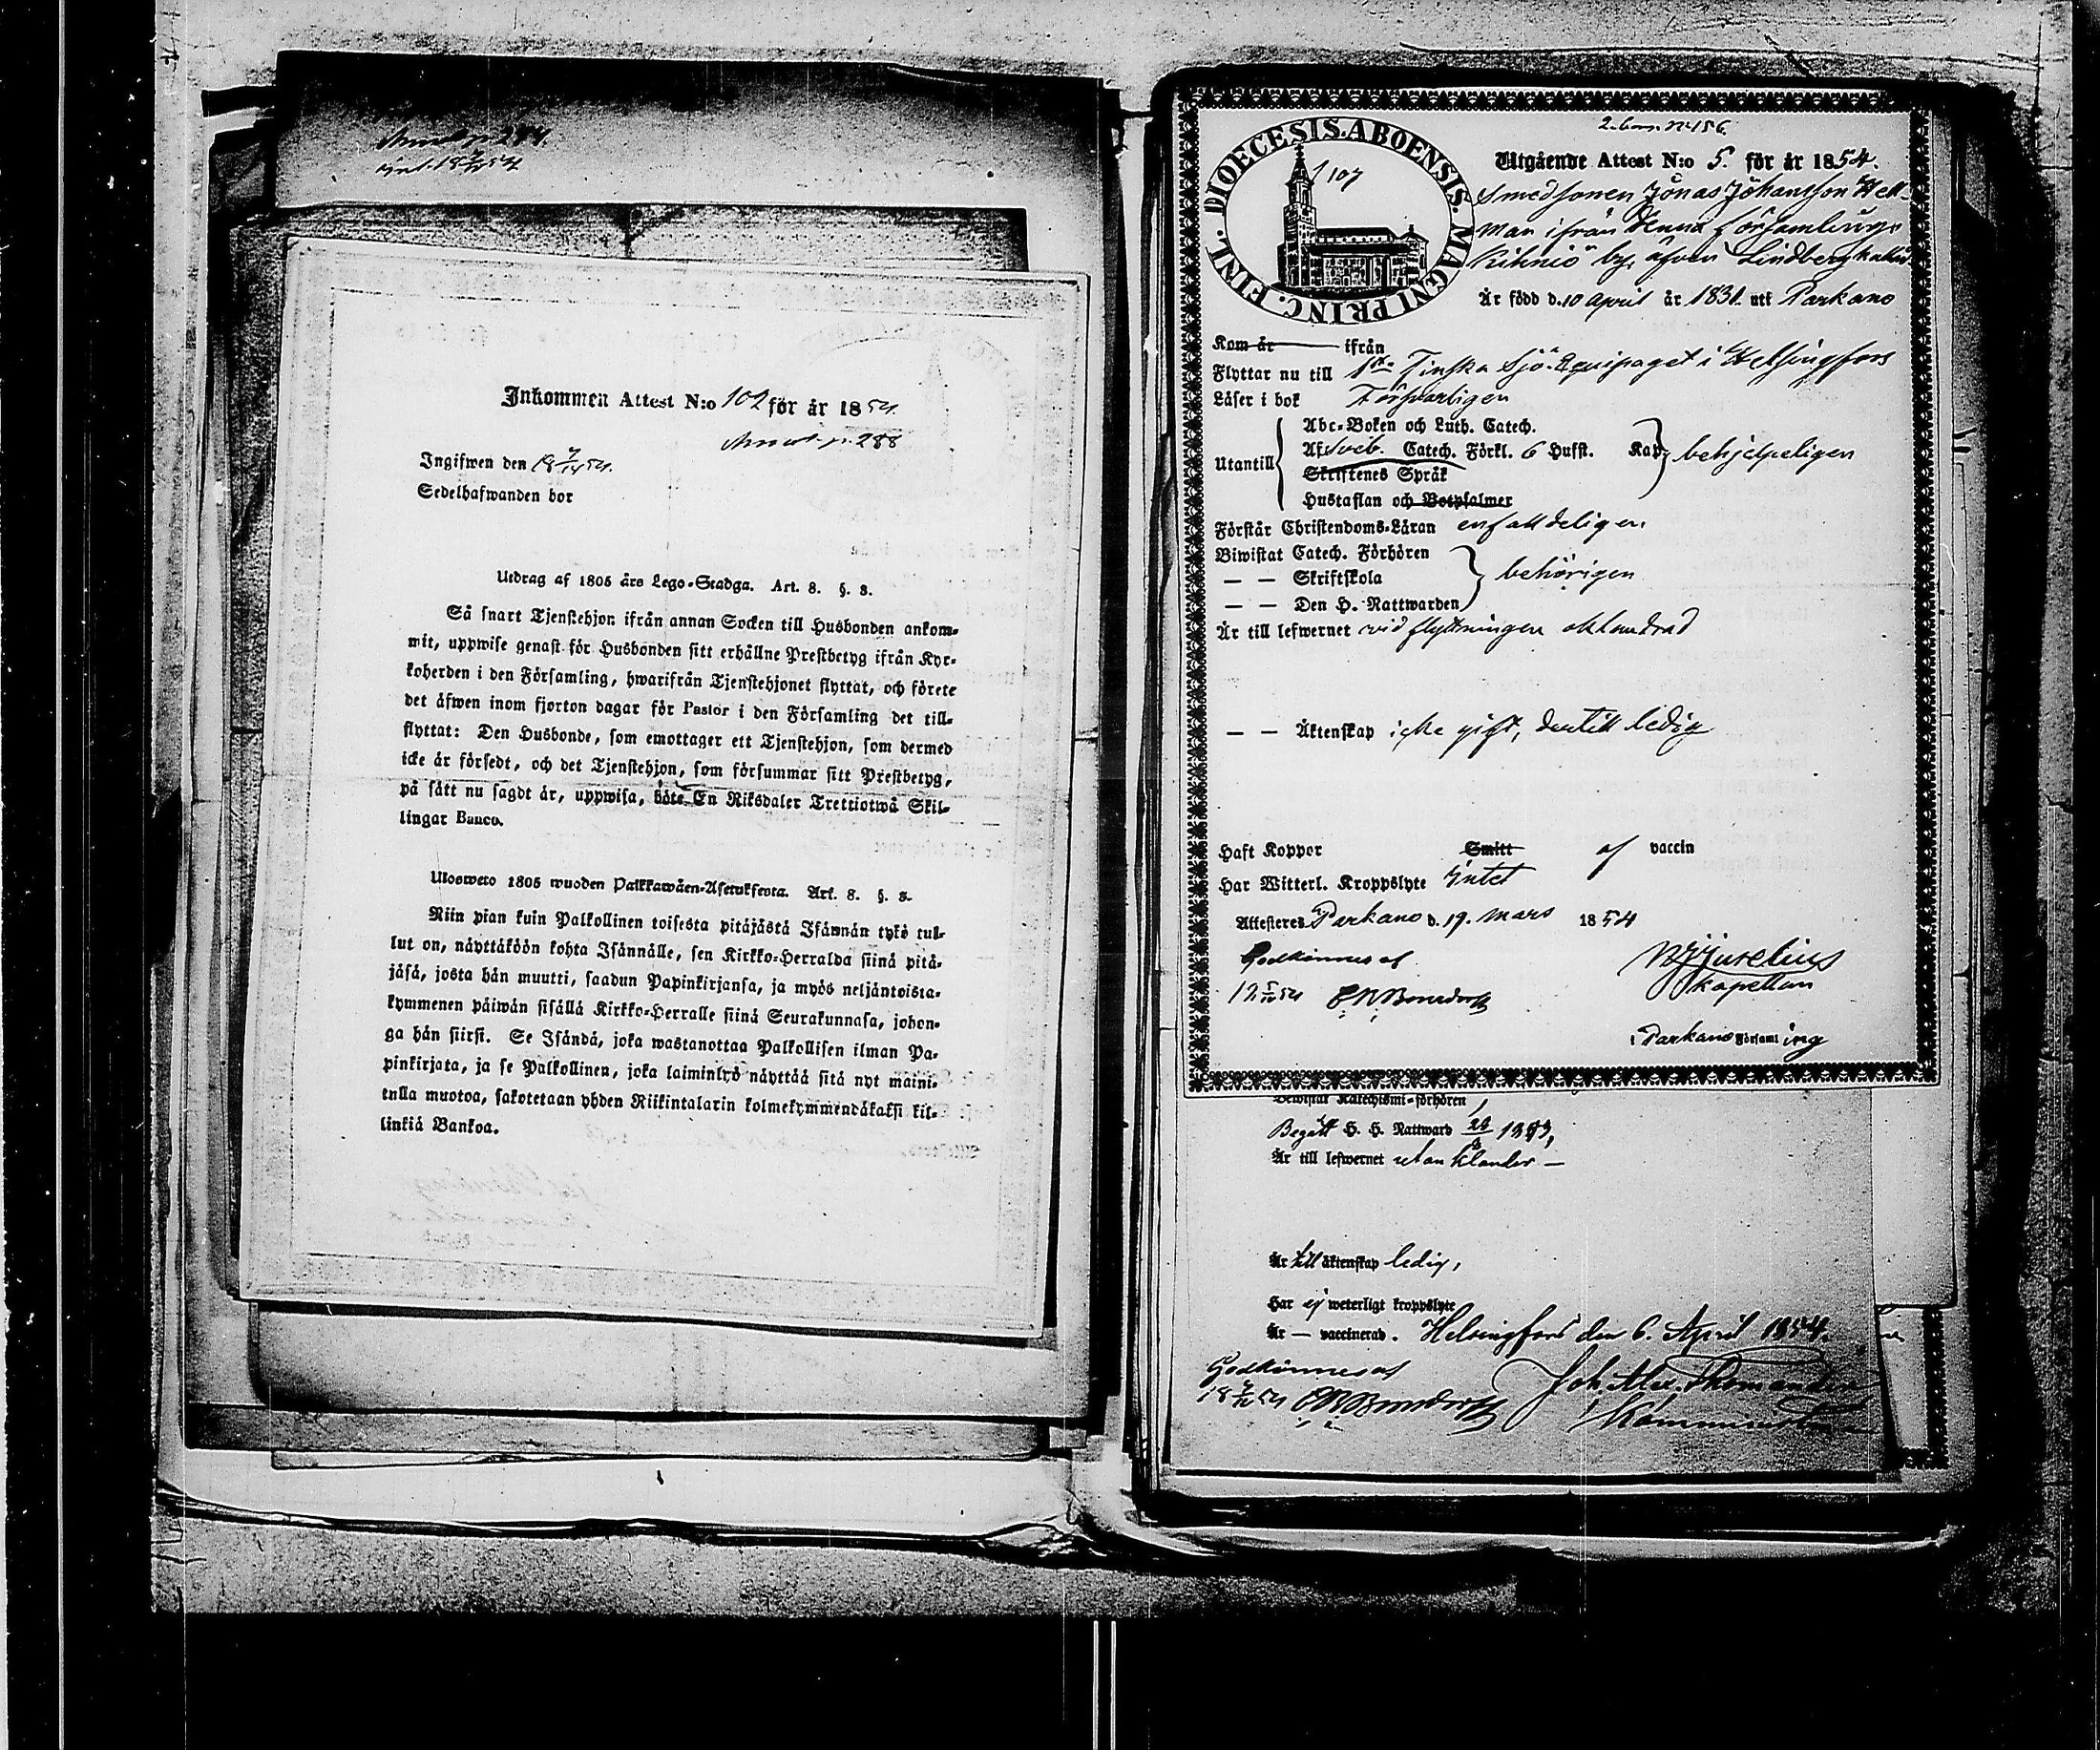 Inkommen Attest N:o 102 för år 1854.
Ingifwen den
Sedelhafwanden bor
Utdrag af 1805 års Lego-Stadga. Art. 8. §. 3.
Så snart Tjenstehjon ifrån annan Socken till Husbonden ankom-
mit, uppwise genast för Husbonden sitt erhållne Prestbetyg ifrån Kyr-
koherden i den Församling, hwarifrån Tjenstehjonet flyttat, och förete
det äfwen inom fjorton dagar för Pastor i den Församling det till-
flyttat: Den Husbonde, som emottager ett Tjenstehjon, som dermed
icke är försedt, och det Tjenstehjon, som försummar sitt Prestbetyg,
på sätt nu sagdt är, uppwisa, böte En Riksdaler Trettiotwå Skil-
lingar Banco.
Ulosweto 1805 wuoden Palkkawäen-Asetuksesta. Art. 8. §. 3.
Niin pian kuin Palkollinen toisesta pitäjästä Isännän tykö tul-
lut on, näyttäköön kohta Isännälle, sen Kirkko-Herralda siinä pitä-
jäsä, josta hän muutti, saadun Papinkirjansa, ja myös neljäntoista-
kymmenen päiwän sisällä Kirkko-Herralle siinä Seurakunnasa, johon-
ga hän siirsi. Se Isändä, joka wastanottaa Palkollisen ilman Pa-
pinkirjata, ja se Palkollinen, joka laiminlyö näyttää sitä nyt maini-
tulla muotoa, sakotetaan yhden Riikintalarin kolmekymmendäkaksi kil-
linkiä Bankoa.
DIOECESIS. ABOENSIS. MAGNI PRINC. FINL.
107
Utgående Attest N:o 5. för år 1854.
Smedsonen Jonas Johansson Hell-
man ifrån denna församlings
Kihniö by, äfven Lindberg
Är född d. 10 April år 1831. uti Parkano
Kom år ifrån
Flyttar nu till 1sta Finska Sjö-Equipaget i Helsingfors
Läser i bok Försvarligen
Abc-Boken och Luth. Catech.
Utantill Af Sveb. Catech. Förkl. 6 Hufst. Kap behjelpeligen
Skriftenes Språk
Hustaflan och Botpsalmer
Förstår Christendoms-Läran enfalldeligen
Biwistat Catech. Förhören
— — Skriftskola behörigen
— — Den H. Nattwarden
Är till lefwernet vid flyttningen oklandrad
— — Äktenskap icke gift, dertill ledig
Haft Koppor Smitt af vaccin
Har Witterl. Kroppslyte Intet
Attesteres Parkano d. 19. Mars 1854
Godkännes af
Kapellan
i Parkano Församling
Bewistat Katechismi-förhören,
Begått H. H. Nattward
Är till lefwernet utan klander —
Är till äktenskap ledig,
Har ej weterligt kroppslyte
Är — vaccinerad. Helsingfors den 6. April 1854.
Godkännes af
Joh. Alex. Thomander